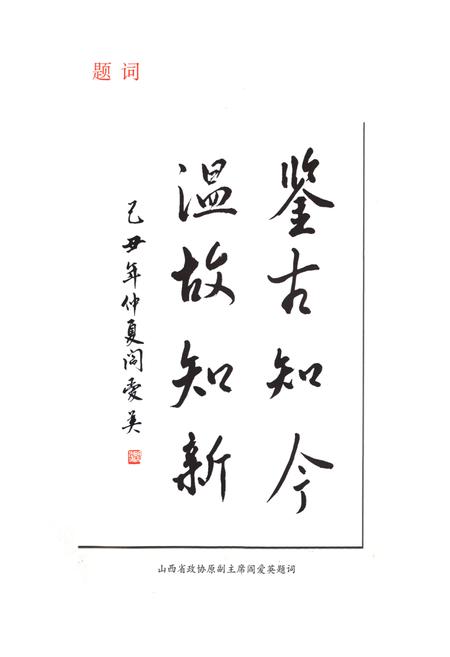 题词
鉴古知今
温故知新
己丑年仲夏阎爱英
山西省政协原副主席阎爱英题词